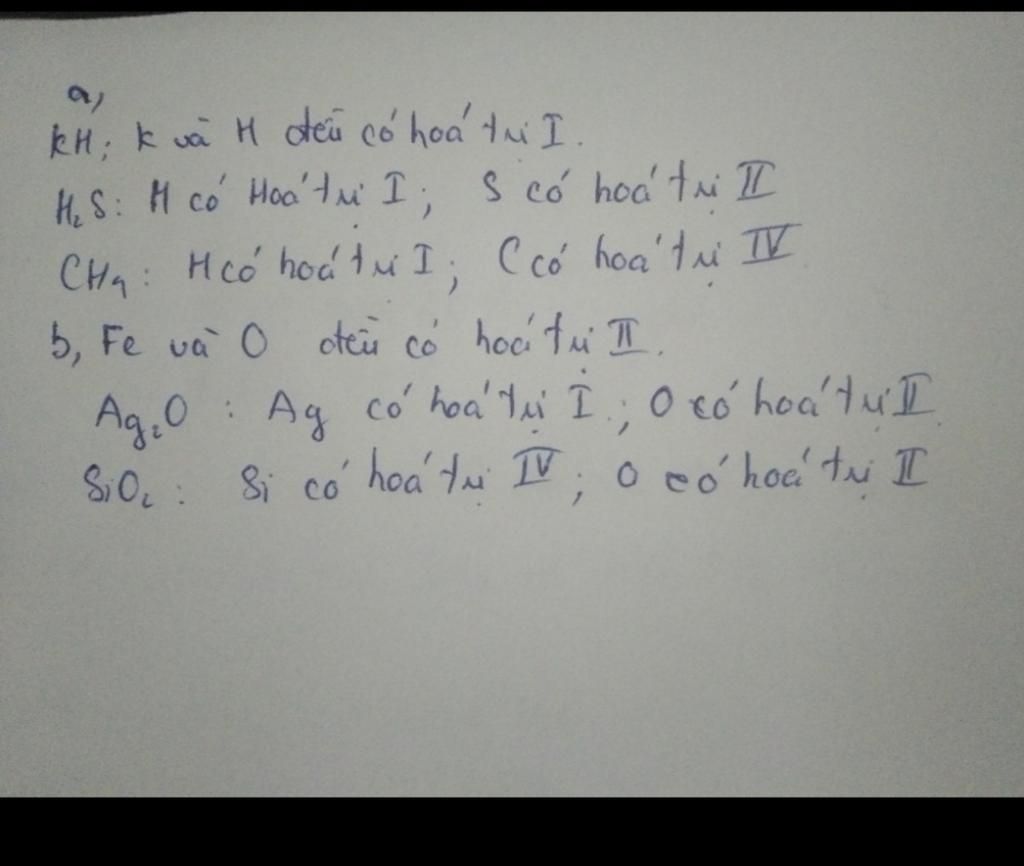 a,
KH: K và H đều có hoá trị I.
H₂S: H có Hoá trị I; S có hoá trị II
CH₄: H có hoá trị I; C có hoá trị IV
b, Fe và O đều có hoá trị II.
Ag₂O: Ag có hoá trị I; O có hoá trị II.
SiO₂: Si có hoá trị IV; O có hoá trị II